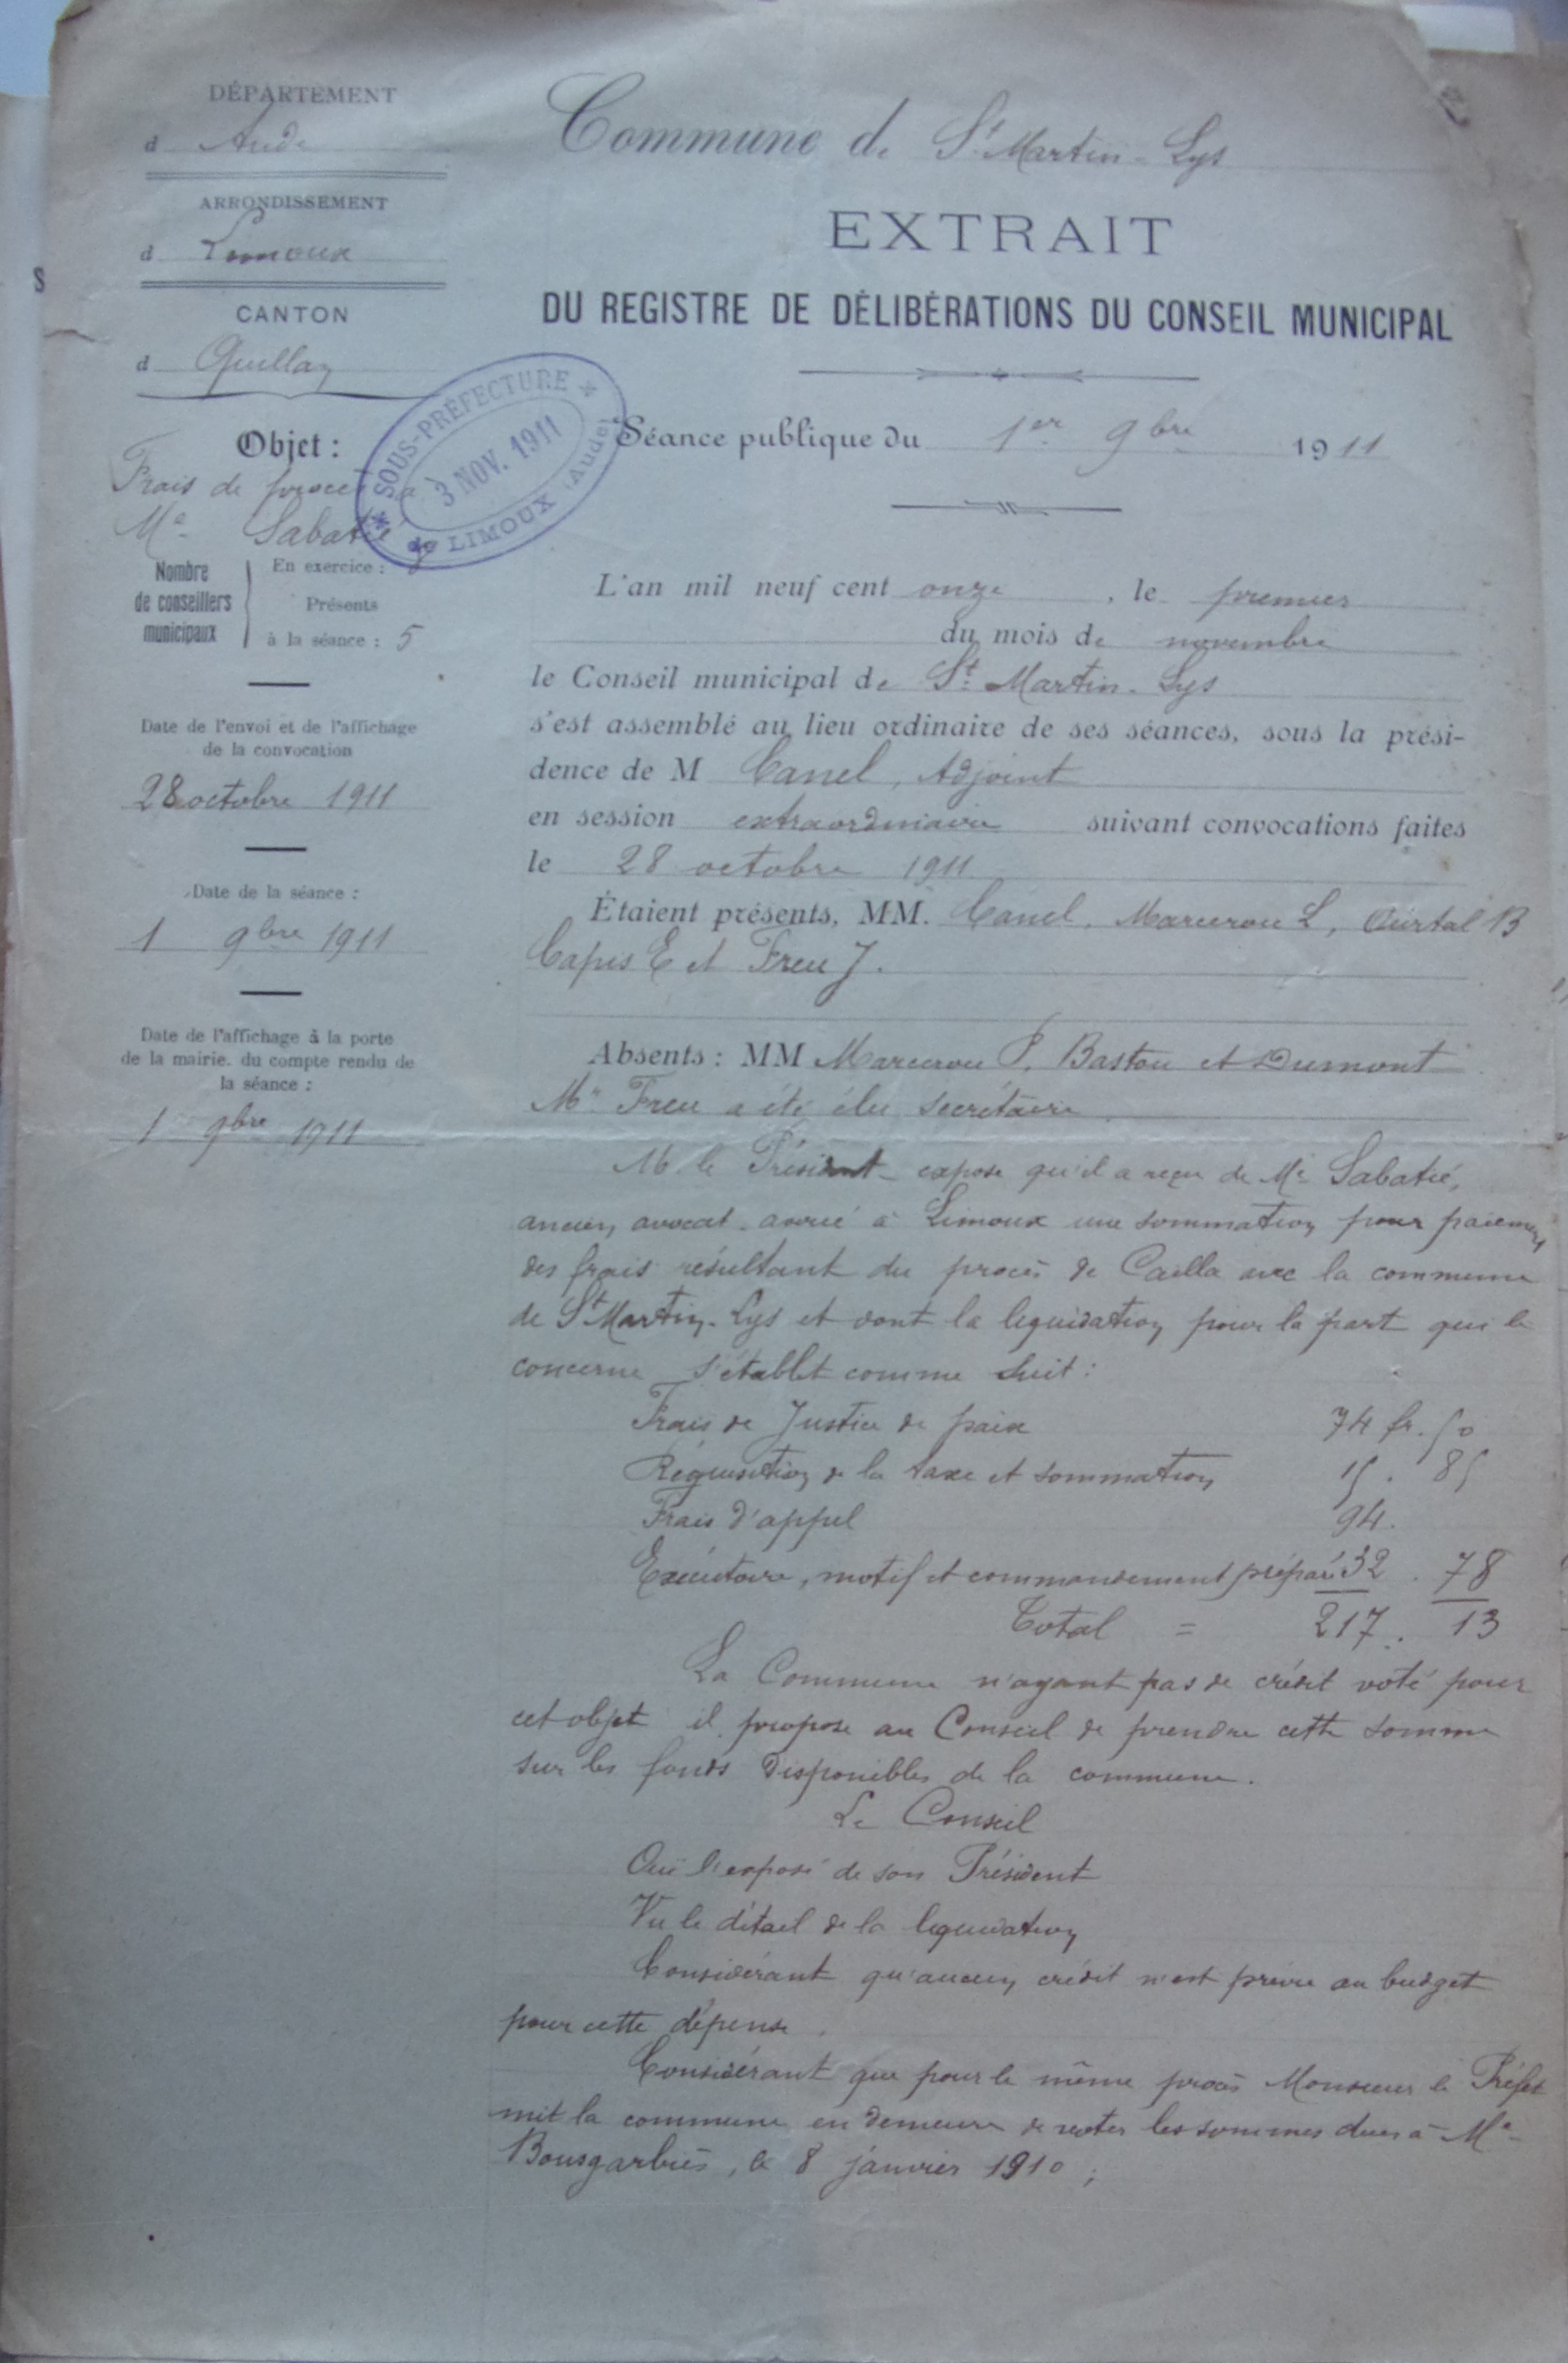 DÉPARTEMENT
d Aude
ARRONDISSEMENT
d Limoux
CANTON
d Quillan
Objet :
Frais de procès à
Me Sabatié
Nombre
de conseillers
municipaux
En exercice :
Présents
à la séance : 5
Date de l'envoi et de l'affichage
de la convocation
28 octobre 1911
Date de la séance :
1 9bre 1911
Date de l'affichage à la porte
de la mairie. du compte rendu de
la séance :
1 9bre 1911
SOUS-PRÉFECTURE
3 NOV. 1911
de LIMOUX (Aude)
Commune de St Martin-Lys
EXTRAIT
DU REGISTRE DE DÉLIBÉRATIONS DU CONSEIL MUNICIPAL
Séance publique du 1er 9bre 1911
L'an mil neuf cent onze , le premier
du mois de novembre
le Conseil municipal de St Martin-Lys
s'est assemblé au lieu ordinaire de ses séances, sous la prési-
dence de M Canel, Adjoint
en session extraordinaire suivant convocations faites
le 28 octobre 1911
Étaient présents, MM. Canel, Marcerou L, Ourtal B
Capus E et Freu J.
Absents : MM Marcerou P, Bastou et Dumont
Mr Freu a été élu secrétaire
M le Président expose qu'il a reçu de Me Sabatié,
ancien avocat-avoué à Limoux une sommation pour paiement
des frais résultant du procès de Cailla avec la commune
de St Martin-Lys et dont la liquidation pour la part qui le
concerne s'établit comme suit :
Frais de Justice de paix 74 fr. 50
Réquisition de la taxe et sommation 15. 85
Frais d'appel 94.
Exécutoire, motif et commandement préparé 32. 78
Total = 217. 13
La Commune n'ayant pas de crédit voté pour
cet objet il propose au Conseil de prendre cette somme
sur les fonds disponibles de la commune.
Le Conseil
Ouï l'exposé de son Président
Vu le détail de la liquidation
Considérant qu'aucun crédit n'est prévu au budget
pour cette dépense.
Considérant que pour le même procès Monsieur le Préfet
mit la commune en demeure de voter les sommes dues à Me
Bousgarbiès, le 8 janvier 1910 ;